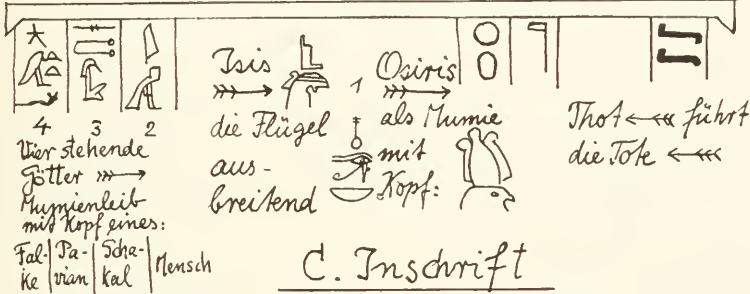 4 3 2
Vier stehende
Götter
Mumienleib
mit Kopf eines:
Fal-ke | Pa-vian | Scha-kal | Mensch
Isis
die Flügel
aus-
breitend
1
Osiris
als Mumie
mit
Kopf:
Thot führt
die Tote
C. Inschrift